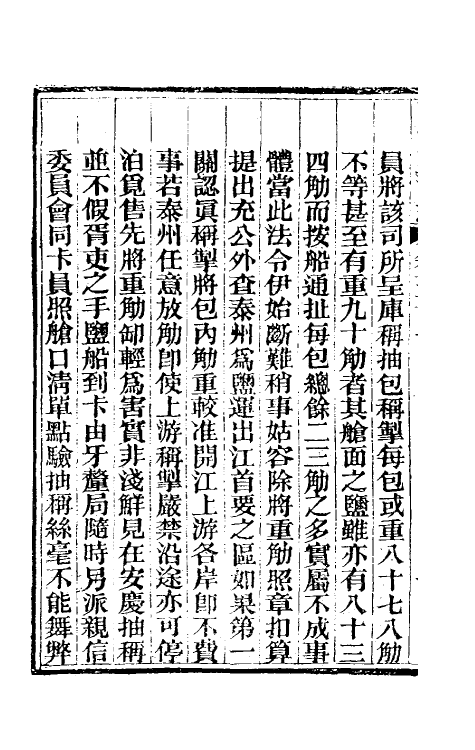 員將該司所呈庫稱抽包稱掣每包或重八十七八觔
不等甚至有重九十觔者其艙面之鹽雖亦有八十三
四觔而按船通扯每包總餘二三觔之多實屬不成事
體當此法令伊始斷難稍事姑容除將重觔照章扣算
提出充公外查泰州爲鹽運出江首要之區如果第一
關認眞稱掣將包內觔重較准開江上游各岸卽不費
事若泰州任意放觔卽使上游稱掣嚴禁沿途亦可停
泊覓售先將重觔卸輕爲害實非淺鮮見在安慶抽稱
並不假胥吏之手鹽船到卡由牙釐局隨時另派親信
委員會同卡員照艙口清單點驗抽稱絲毫不能舞弊